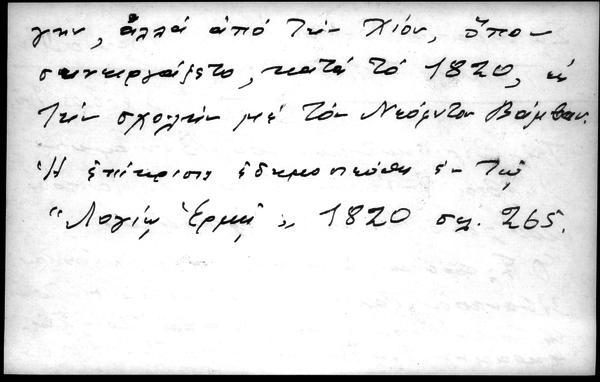 γην, ἀλλά ἀπό τήν Χίον, ὅπου
συνειργάζετο, κατά τό 1820, εἰς
τήν σχολήν μέ τόν Νεόφυτον Βάμβαν.
Ἡ ἐπίκρισις ἐδημοσιεύθη ἐν τῷ
"Λογίῳ Ἑρμῇ„ 1820 σελ. 265.